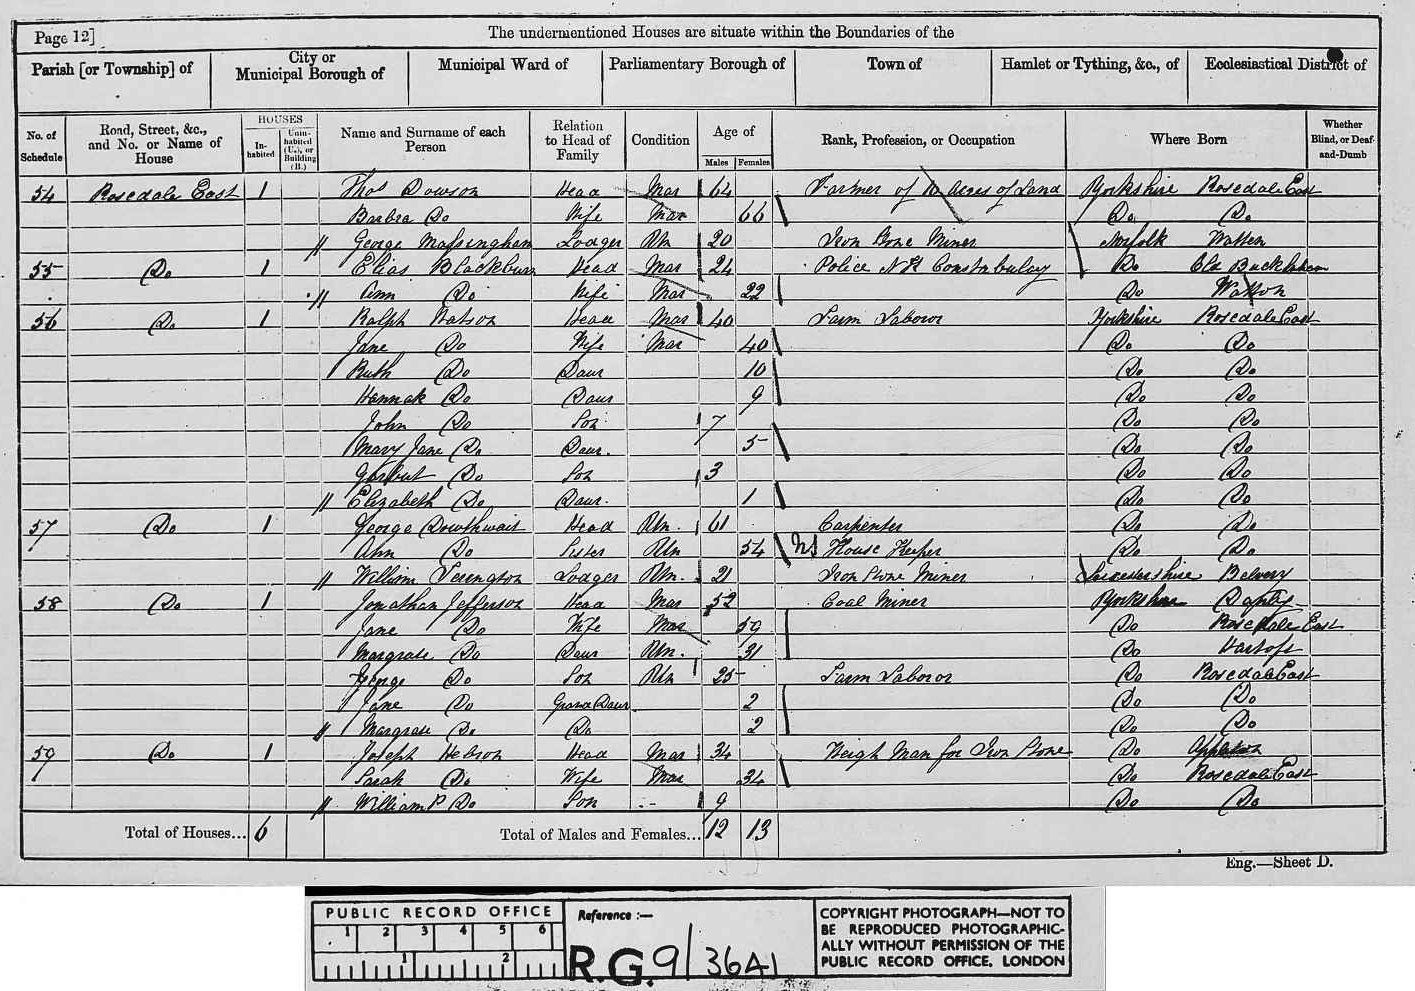 Page 12]
The undermentioned Houses are situate within the Boundaries of the
Parish [or Township] of City or Municipal Borough of Municipal Ward of Parliamentary Borough of Town of Hamlet or Tything, &c., of Ecclesiastical District of
No. of Schedule Road, Street, &c., and No. or Name of House HOUSES In-habited Unin-habited (U.), or Building (B.) Name and Surname of each Person Relation to Head of Family Condition Age of Males Females Rank, Profession, or Occupation Where Born Whether Blind, or Deaf-and-Dumb
54 Rosedale East 1 Thos Dowson Head Mar 64 Farmer of 10 Acres of Land Yorkshire Rosedale East
Barbra Do Wife Mar 66 Do Do
George Massingham Lodger Un 20 Iron Stone Miner Norfolk Watton
55 Do 1 Elias Blackburn Head Mar 24 Police NR Constabulary Do Old Buckenham
Ann Do Wife Mar 22 Do Watton
56 Do 1 Ralph Watson Head Mar 40 Farm Labouror Yorkshire Rosedale East
Jane Do Wife Mar 40 Do Do
Ruth Do Daur 10 Do Do
Hannah Do Daur 9 Do Do
John Do Son 7 Do Do
Mary Jane Do Daur. 5 Do Do
Do Son 3 Do Do
Elizabeth Do Daur. 1 Do Do
57 Do 1 George Dowthwait Head Un. 61 Carpenter Do Do
Ann Do Sister Un 54 House Keeper Do Do
William Terington Lodger Un. 21 Iron Stone Miner Leicestershire
58 Do 1 Jonathan Jefferson Head Mar 52 Coal Miner Yorkshire Danby
Jane Do Wife Mar 59 Do Rosedale East
Margrate Do Daur Un. 31 Do Hartoft
George Do Son Un 25 Farm Laboror Do Rosedale East
Jane Do Grand Daur 2 Do Do
Margrate Do Do 2 Do Do
59 Do 1 Joseph Hebron Head Mar 34 Weigh Man for Iron Stone Do Appleton
Sarah Do Wife Mar 34 Do Rosedale East
William P Do Son 9 Do Do
Total of Houses... 6 Total of Males and Females... 12 13
Eng.—Sheet D.
PUBLIC RECORD OFFICE
1 2 3 4 5 6
1 2
Reference :—
R.G. 9/3641
COPYRIGHT PHOTOGRAPH—NOT TO
BE REPRODUCED PHOTOGRAPHIC-
ALLY WITHOUT PERMISSION OF THE
PUBLIC RECORD OFFICE, LONDON